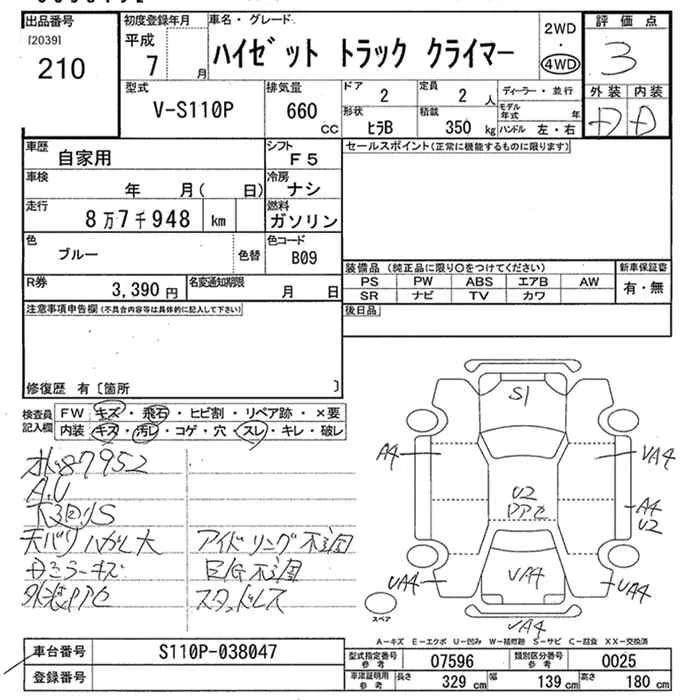 出品番号
[2039]
210
初度登録年月
平成
7 月
車名・グレード
ハイゼット トラック クライマー
2WD
・
4WD
評価点
3
外装 内装
D D
型式
V-S110P
排気量
660 CC
ドア
2
定員
2 人
形状
ヒラB
積載
350 kg
ディーラー・並行
モデル年式 年
ハンドル 左・右
車歴
自家用
シフト
F5
車検
年 月( 日)
冷房
ナシ
走行
8万7千948 km
燃料
ガソリン
色
ブルー
色替
色コード
B09
R券
3,390 円
名変通知期限
月 日
セールスポイント(正常に機能するものに限ります)
装備品 (純正品に限り○をつけてください)
PS PW ABS エアB AW
SR ナビ TV カワ
新車保証書
有・無
後日品
注意事項申告欄(不具合内容等は具体的に記入して下さい)
修復歴 有〔箇所 〕
検査員記入欄
FW キズ・飛石・ヒビ割・リペア跡・×要
内装 キズ・汚レ・コゲ・穴・スレ・キレ・破レ
水し87952
A.U
下回りS
天バリハガレ大
アイドリング不調
ミラーキズ
E/G不調
外装
スタッドレス
S1
A4
VA4
U2
A4
U2
UA4
VA4
UA4
VA4
スペア
A-キズ E-エクボ U-凹み W-補修跡 S-サビ C-腐食 XX-交換済
車台番号
S110P-038047
登録番号
型式指定番号 参考
07596
類別区分番号 参考
0025
車庫証明用 参考
長さ 329 cm
幅 139 cm
高さ 180 cm